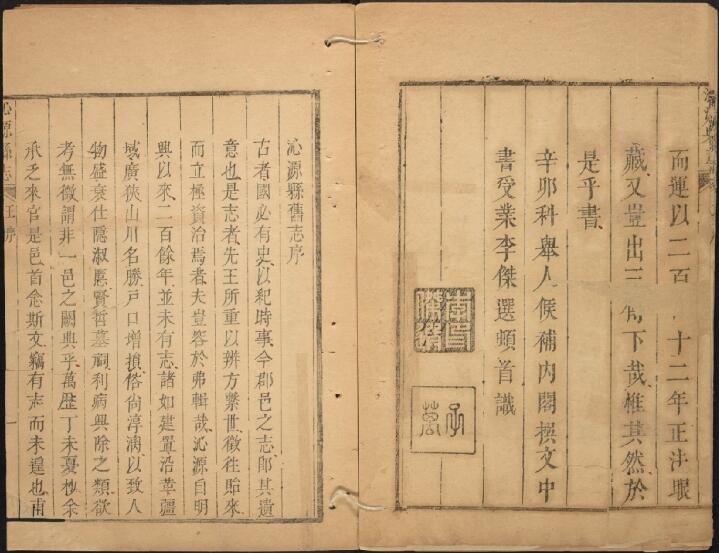 而運以二百 十二年正法眼
藏又豈出三 下哉惟其然於
是乎書
辛卯科舉人候補內閣撰文中
書受業李傑選頓首識
沁源縣舊志序
古者國必有史以紀時事今郡邑之志郎其遺
意也是志者先王所重以辨方繫世徵往貽來
而立極資治焉者夫豈容於弗輯哉沁源自明
興以來二百餘年並未有志諸如建置沿革疆
域廣狹山川名勝戸口增損俗尙淳漓以致人
物盛衰仕隱淑慝賢哲墓嗣利病興除之類欲
考無徵謂非一邑之闕典乎萬歷丁未夏杪余
承乏來官是邑首念斯文竊有志而未遑也甫
沁源縣志 王序